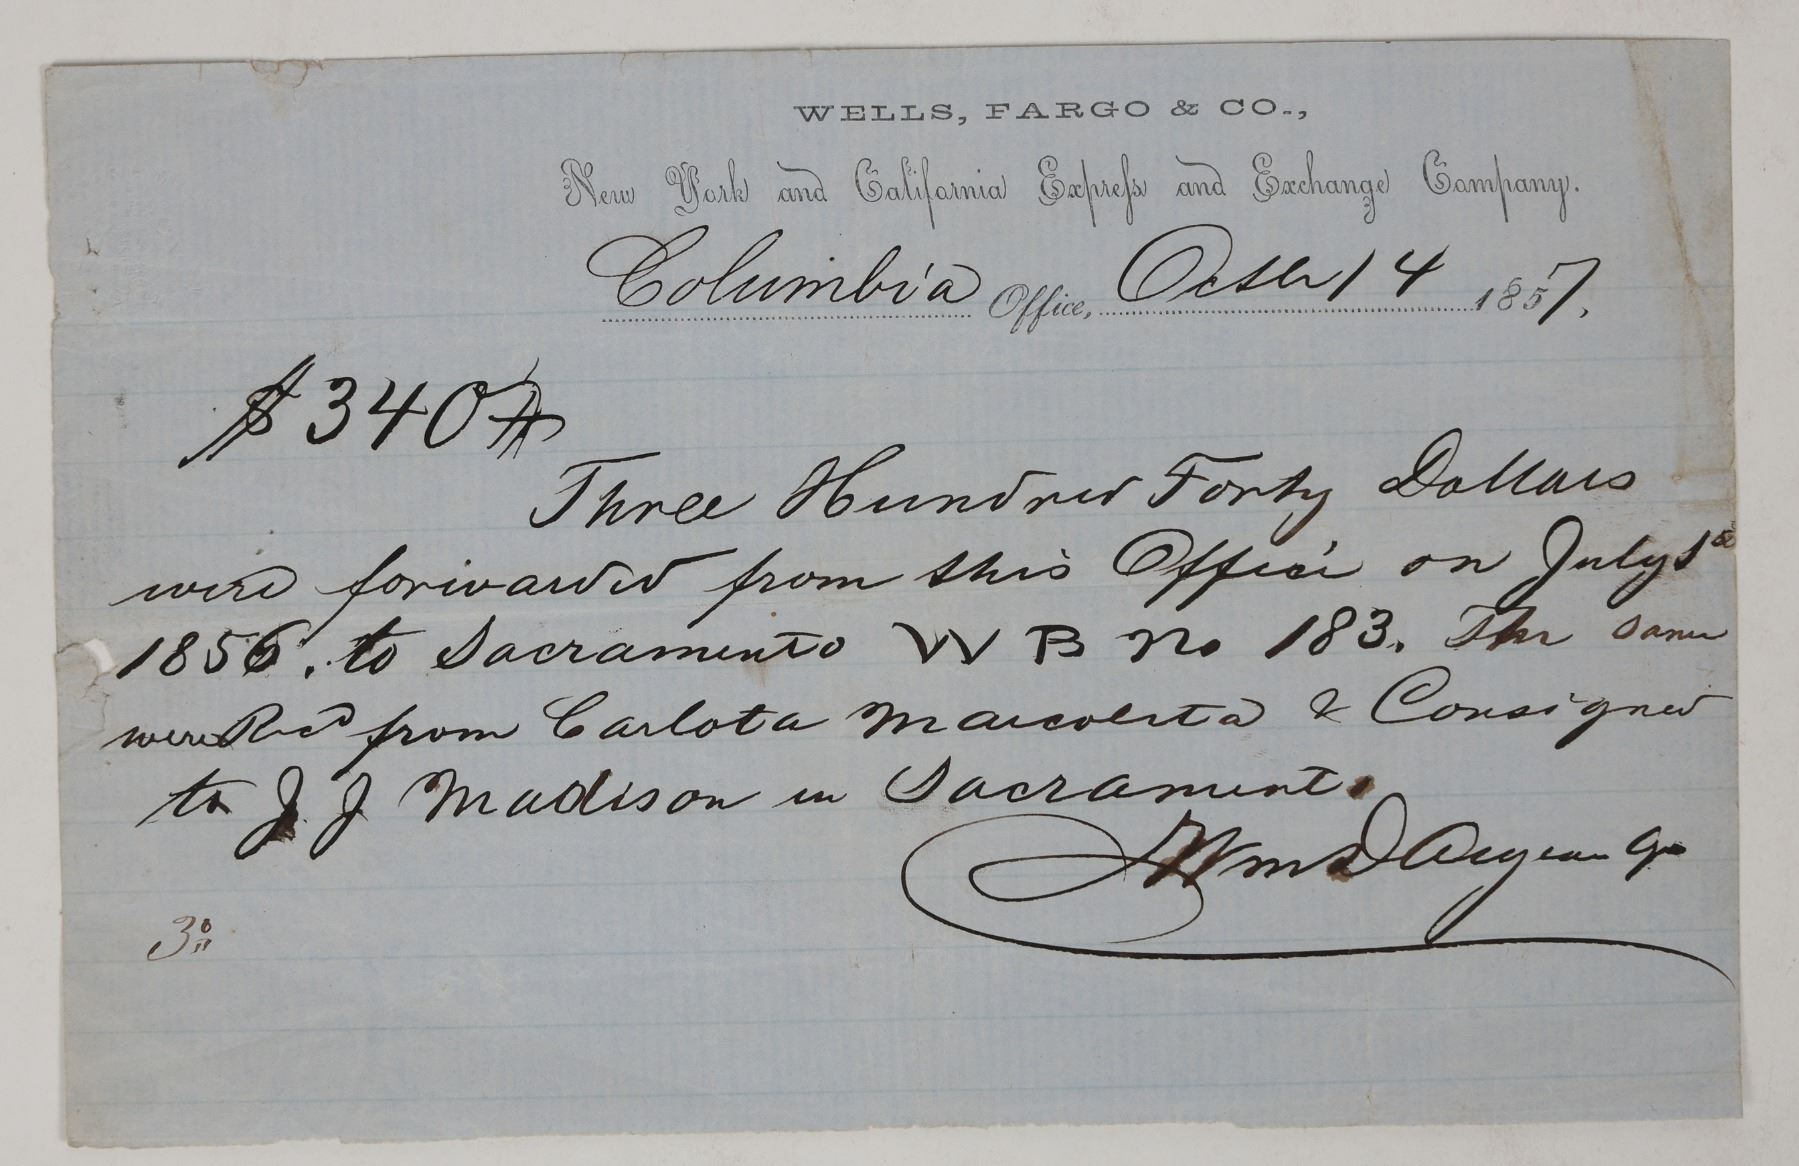 WELLS, FARGO & CO.,
New York and California Express and Exchange Company.
Columbia Office, Octbr 14 1857.
$340
Three Hundred Forty Dollars
were forwarded from this Office on July 1st
1856. to Sacramento W B No 183. The same
were Recd from Carlota & Consigned
to J J Madison in Sacramento.
Wm